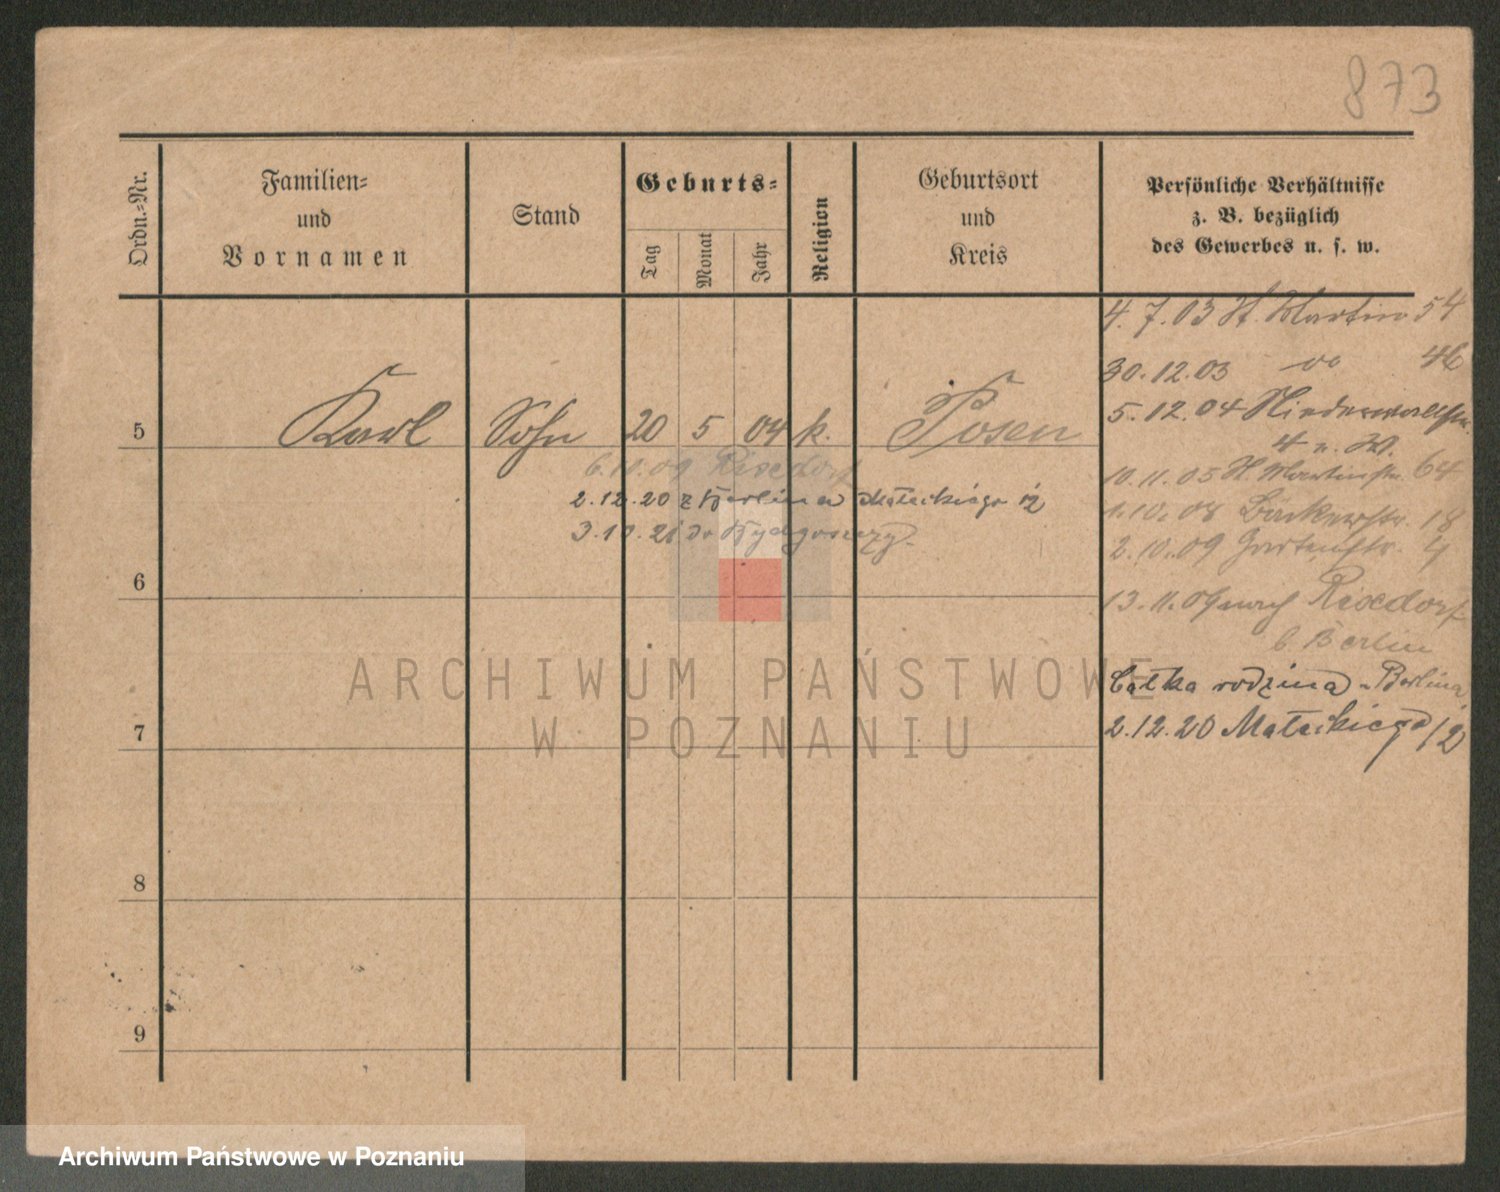 873
Ordn.-Nr.
Familien-
und
Vornamen
Stand
Geburts-
Tag
Monat
Jahr
Religion
Geburtsort
und
Kreis
Persönliche Verhältnisse
z. B. bezüglich
des Gewerbes u. s. w.
5 Karl Sohn 20 5 04 k. Posen
6.11.09 Rixdorf
2.12.20 z Berlina Małeckiego 12
3.10.21 do Bydgoszczy.
6
7
8
9
4.7.03 St. Martin 54
30.12.03 do 46
5.12.04 Niederwallstr.
4 u. W.
10.11.05 St. Martinstr. 64
1.10.08 Bäckerstr. 18
2.10.09 Gartenstr. 4
13.11.09 nach Rixdorf
b. Berlin
Całka rodzina z Berlina
2.12.20 Małeckiego 12
ARCHIWUM PAŃSTWOWE
W POZNANIU
Archiwum Państwowe w Poznaniu